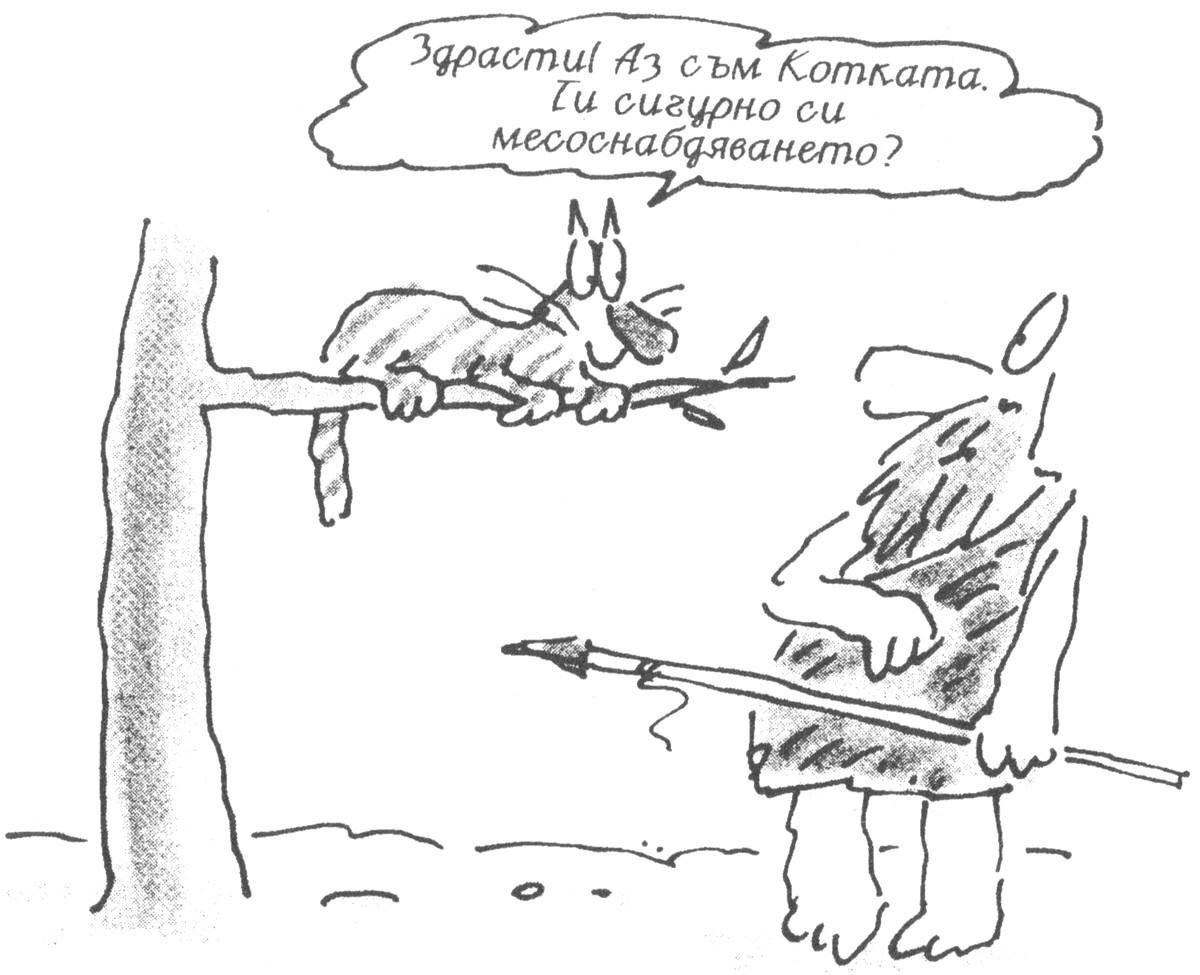 Здрасти! Аз съм Котката.
Ти сигурно си
месоснабдяването?